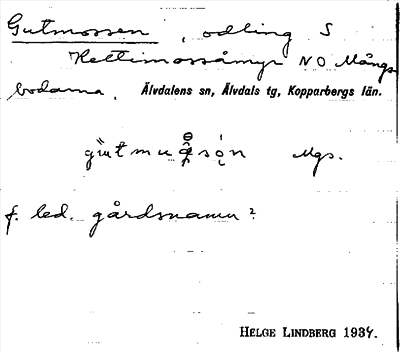 Gutmossen, odling S
Kettimossåmyr NO Mångs-
bodarna. Älvdalens sn, Älvdals tg, Kopparbergs län.
Mgs.
f. led. gårdsnamn?
HELGE LINDBERG 1934.